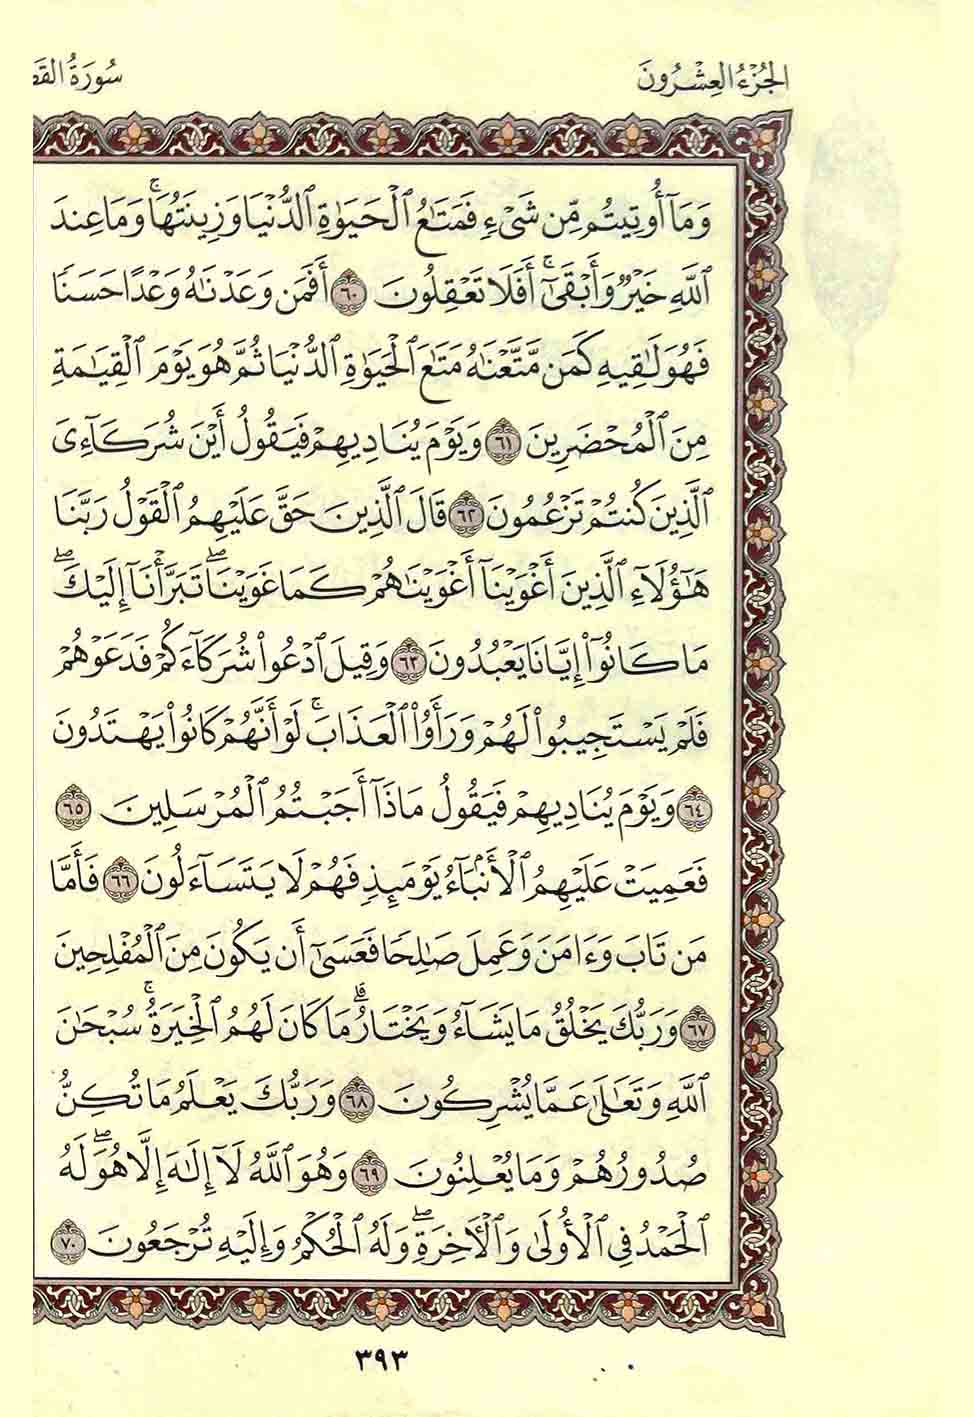 الجُزْءُ العِشْرُونَ
سُورَةُ القَصَ
وَمَآ أُوتِيتُم مِّن شَيْءٍ فَمَتَٰعُ ٱلْحَيَوٰةِ ٱلدُّنْيَا وَزِينَتُهَا ۚ وَمَا عِندَ
ٱللَّهِ خَيْرٌ وَأَبْقَىٰٓ ۚ أَفَلَا تَعْقِلُونَ ٦٠ أَفَمَن وَعَدْنَٰهُ وَعْدًا حَسَنًا
فَهُوَ لَٰقِيهِ كَمَن مَّتَّعْنَٰهُ مَتَٰعَ ٱلْحَيَوٰةِ ٱلدُّنْيَا ثُمَّ هُوَ يَوْمَ ٱلْقِيَٰمَةِ
مِنَ ٱلْمُحْضَرِينَ ٦١ وَيَوْمَ يُنَادِيهِمْ فَيَقُولُ أَيْنَ شُرَكَآءِىَ
ٱلَّذِينَ كُنتُمْ تَزْعُمُونَ ٦٢ قَالَ ٱلَّذِينَ حَقَّ عَلَيْهِمُ ٱلْقَوْلُ رَبَّنَا
هَٰٓؤُلَآءِ ٱلَّذِينَ أَغْوَيْنَآ أَغْوَيْنَٰهُمْ كَمَا غَوَيْنَا ۖ تَبَرَّأْنَآ إِلَيْكَ ۖ
مَا كَانُوٓا۟ إِيَّانَا يَعْبُدُونَ ٦٣ وَقِيلَ ٱدْعُوا۟ شُرَكَآءَكُمْ فَدَعَوْهُمْ
فَلَمْ يَسْتَجِيبُوا۟ لَهُمْ وَرَأَوُا۟ ٱلْعَذَابَ ۚ لَوْ أَنَّهُمْ كَانُوا۟ يَهْتَدُونَ
٦٤ وَيَوْمَ يُنَادِيهِمْ فَيَقُولُ مَاذَآ أَجَبْتُمُ ٱلْمُرْسَلِينَ ٦٥
فَعَمِيَتْ عَلَيْهِمُ ٱلْأَنۢبَآءُ يَوْمَئِذٍ فَهُمْ لَا يَتَسَآءَلُونَ ٦٦ فَأَمَّا
مَن تَابَ وَءَامَنَ وَعَمِلَ صَٰلِحًا فَعَسَىٰٓ أَن يَكُونَ مِنَ ٱلْمُفْلِحِينَ
٦٧ وَرَبُّكَ يَخْلُقُ مَا يَشَآءُ وَيَخْتَارُ ۗ مَا كَانَ لَهُمُ ٱلْخِيَرَةُ ۚ سُبْحَٰنَ
ٱللَّهِ وَتَعَٰلَىٰ عَمَّا يُشْرِكُونَ ٦٨ وَرَبُّكَ يَعْلَمُ مَا تُكِنُّ
صُدُورُهُمْ وَمَا يُعْلِنُونَ ٦٩ وَهُوَ ٱللَّهُ لَآ إِلَٰهَ إِلَّا هُوَ ۖ لَهُ
ٱلْحَمْدُ فِى ٱلْأُولَىٰ وَٱلْءَاخِرَةِ ۖ وَلَهُ ٱلْحُكْمُ وَإِلَيْهِ تُرْجَعُونَ ٧٠
٣٩٣